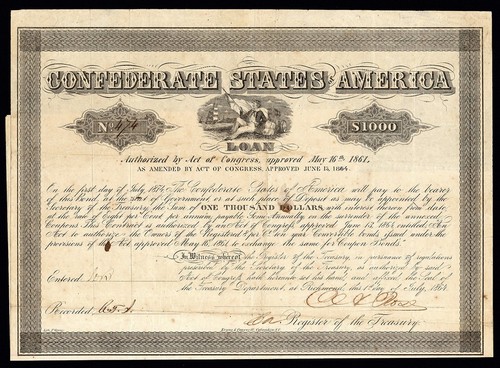 CONFEDERATE STATES OF AMERICA
No. 474
$1000
LOAN
Authorized by Act of Congress, approved May 16th 1861,
AS AMENDED BY ACT OF CONGRESS, APPROVED JUNE 13, 1864.
On the first day of July 1874 The Confederate States of America will pay to the bearer
of this Bond, at the seat of Government, or at such place of Deposit as may be appointed by the
Secretary of the Treasury, the Sum of ONE THOUSAND DOLLARS, with interest thereon from this date
at the rate of Eight per Cent per annum, payable Semi Annually on the surrender of the annexed
Coupons. This Contract is authorized by an Act of Congress June 13, 1864 entitled An
Act to authorize the Owners of the Registered
year Convertible bonds issued under the
provisions of the Act approved May 16, 1861 to exchange the same for Coupon Bonds.
In Witness whereof, the Register of the Treasury, in pursuance of regulations
prescribed by the Secretary of the Treasury, as authorized by said
Act of Congress, hath hereunto set his hand, and affixed the Seal of
the Treasury Department, at Richmond, this 1st day of July, 1864
Entered
Recorded
Register of the Treasury.
Evans & Cogswell, Columbia S.C.